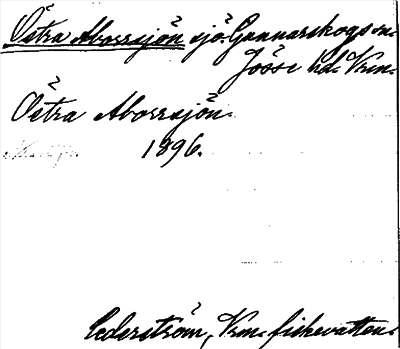 Östra Aborrsjön sjö. Gunnarskogs sn.
Jösse hd. Vrm.
Östra Aborrsjön.
1896.
Cederström, Vrm. fiskevatten.